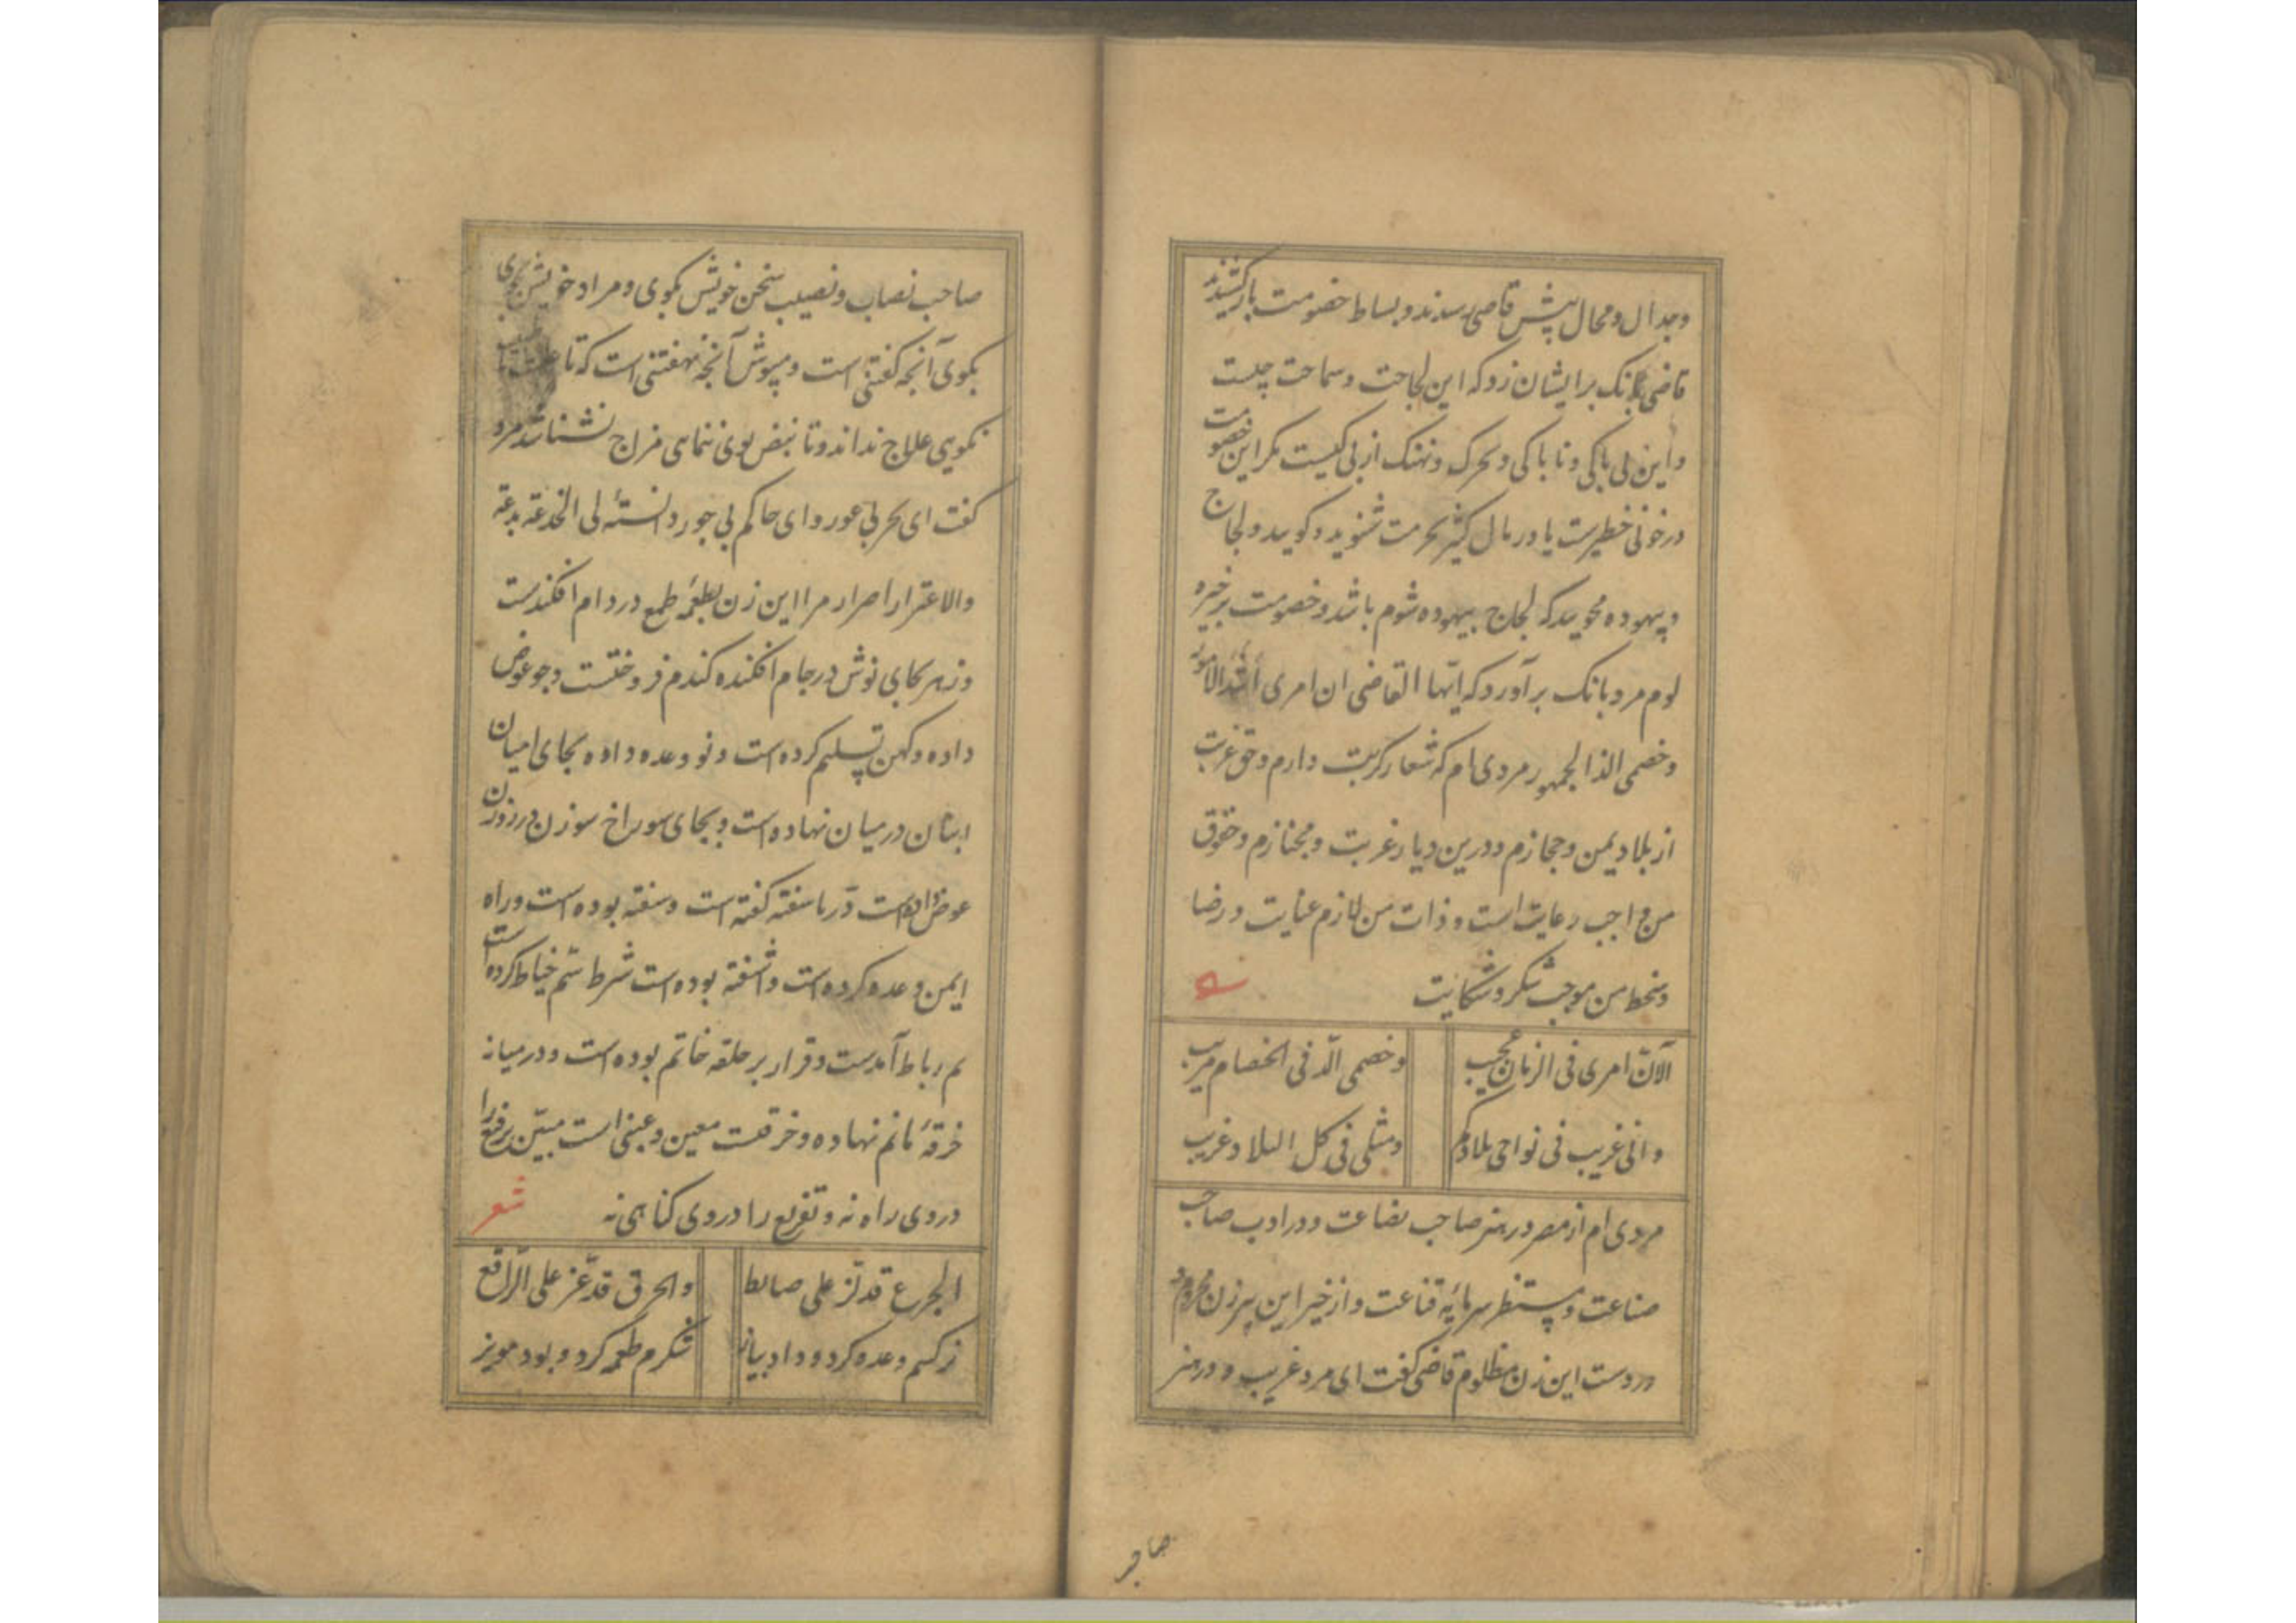 وجدال ومحال پیش قاضی رسیدند و بساط خصومت باز کشیدند
قاضی بانک بر ایشان زد که این لجاجت و سماحت چیست
واین بی باکی و ناپاکی وتحرک و تهتک از پی کیست مکر این خصومت
در خونی خطیرست یا در مال کثیر بحرمت شنوید و کویید و لجاج
و بیهوده مجویید که لجاج بیهوده شوم باشد و خصومت بر خیره
لوم مرد بانک برآورد که ایّها القاضی ان امری اشد الامور
وخصمی الد الجمهور مردی ام که شعار کربت دارم و حق غربت
از بلاد یمن و حجازم و درین دیار غربت و مجتازم و حقوق
من واجب رعایت است و ذات من لازم عنایت و رضا
وسخط من موجب شکر و شکایت
الآن امری فی الزمان عجیب وخصمی الّد فی الخصام مریب
وانی غریب فی نواحی بلادکم ومثلی فی کل البلاد غریب
مردی ام از مصر در هنر صاحب بضاعت و در ادب صاحب
صناعت و مستظهر سرمایه قناعت و از خیر این پیرزن محروم و
در دست این زن مظلوم قاضی کفت ای مرد غریب و در هنر
صاحب
صاحب نصاب و نصیب سخن خویش بکوی و مراد خویش بجوی
بکوی آنچه کفتنی است و بپوش آنچه نهفتنی است که تا علت
نکویی علاج نداند و تا نبض بوی ننمایی مزاج نشناسد مرد
کفت ای بحر بی غور و ای حاکم بی جور دانسته ٔ لی الخدعة بدعة
والاغترار اصرار مرا این زن بطعمه طمع در دام افکندست
و زهر بجای نوش در جام افکنده کندم فروختست و جو عوض
داده و کهن تسلیم کرده است و نو وعده داده بجای امیان
انبان در میان نهاده است و بجای سوراخ سوزن در زورن
عوض داده است درّ ناسفته کفته است و سفته بوده است و راه
ایمن وعده کرده است و آشفته بوده است شرط سَم خیاط کرده است
سم رباط آمدست و قرار بر حلقه خاتم بوده است و در میانه
خرقه ماتم نهاده و خرقت معین و عینی است مبیّن رقع را
در وی راه نه و تفریع را در وی کناهی نه
شعر
والخرق قد عز علی الراقع
زکسم وعده کرد و داد پیاز شکرم طعمه کرد و بود مویز